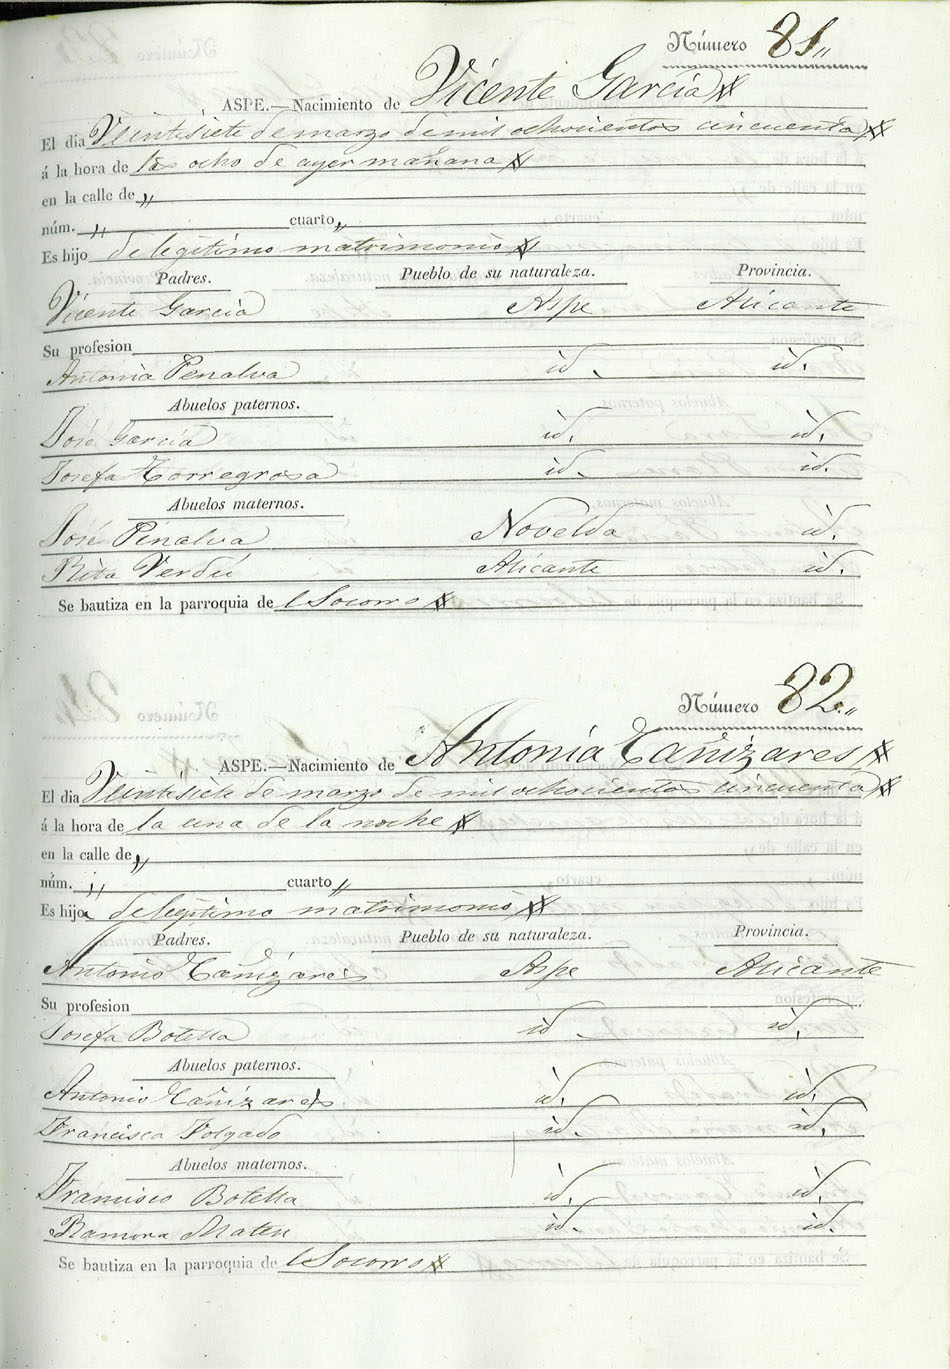 Número 81„
ASPE.—Nacimiento de Vicente García
El dia Veintisiete de marzo de mil ochocientos cincuenta
á la hora de las ocho de ayer mañana
en la calle de „
núm. „ cuarto „
Es hijo de legítimo matrimonio
Padres. Pueblo de su naturaleza. Provincia.
Vicente García Aspe Alicante
Su profesion
Antonia Penalva id. id.
Abuelos paternos.
José García id. id.
Josefa Torregrosa id. id.
Abuelos maternos.
José Penalva Novelda id.
Rita Verdú Alicante id.
Se bautiza en la parroquia de l Socorro
Número 82„
ASPE.—Nacimiento de Antonia Cañizares
El dia Veintisiete de marzo de mil ochocientos cincuenta
á la hora de la una de la noche
en la calle de „
núm. „ cuarto „
Es hija de legítimo matrimonio
Padres. Pueblo de su naturaleza. Provincia.
Antonio Cañizares Aspe Alicante
Su profesion
Josefa Botella id. id.
Abuelos paternos.
Antonio Cañizares id. id.
Francisca Folgado id. id.
Abuelos maternos.
Francisco Botella id. id.
Ramona Mateu id. id.
Se bautiza en la parroquia de l Socorro